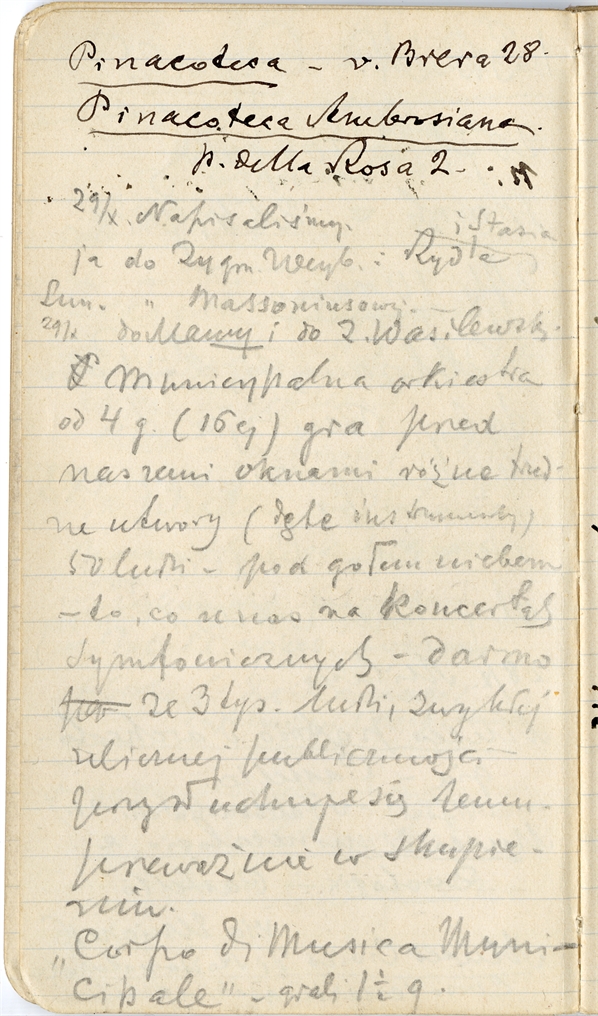 Pinacoteca – v. Brera 28.
Pinacoteca Ambrosiana.
p. della Rosa 2 –
29/X. Napisaliśmy. i Stasia
ja do Zygm. Weyb. i Rydla
" Massoniusowi. –
29/X do Mamy i do Z. Wasilewsk.
Municypalna orkiestra
od 4 g. (16ej) gra przed
naszemi oknami różne trud-
ne utwory (dęte instrumenty)
50 ludzi – pod gołem niebem
– to, co u nas na koncertach
symfonicznych – darmo
ze 3 tys. ludzi, zwykłej
ulicznej publiczności
przysłuchuje się temu.
przeważnie w skupie-
niu.
„Corpo di Musica Muni-
cipale" – grali 1½ g.